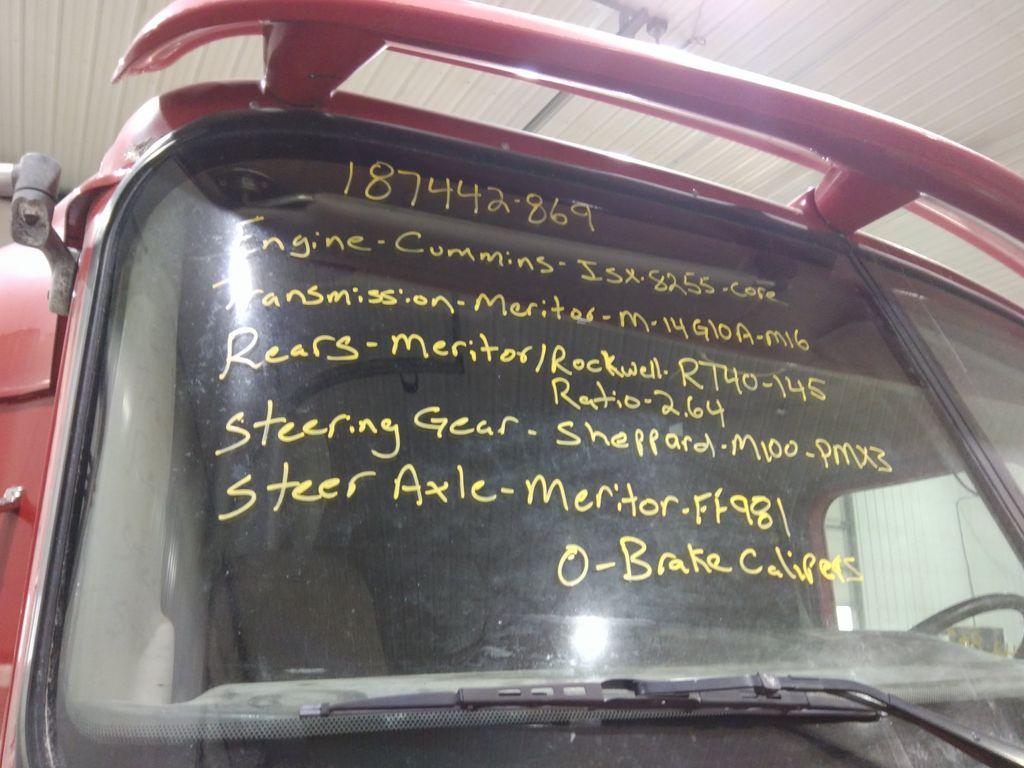 187442-869
Engine-Cummins-ISX-8255-Core
Transmission-Meritor-M-14G10A-M16
Rears-Meritor/Rockwell-RT40-145
Ratio-2.64
Steering Gear-Sheppard-M100-PMX3
Steer Axle-Meritor-FF981
0-Brake Calipers